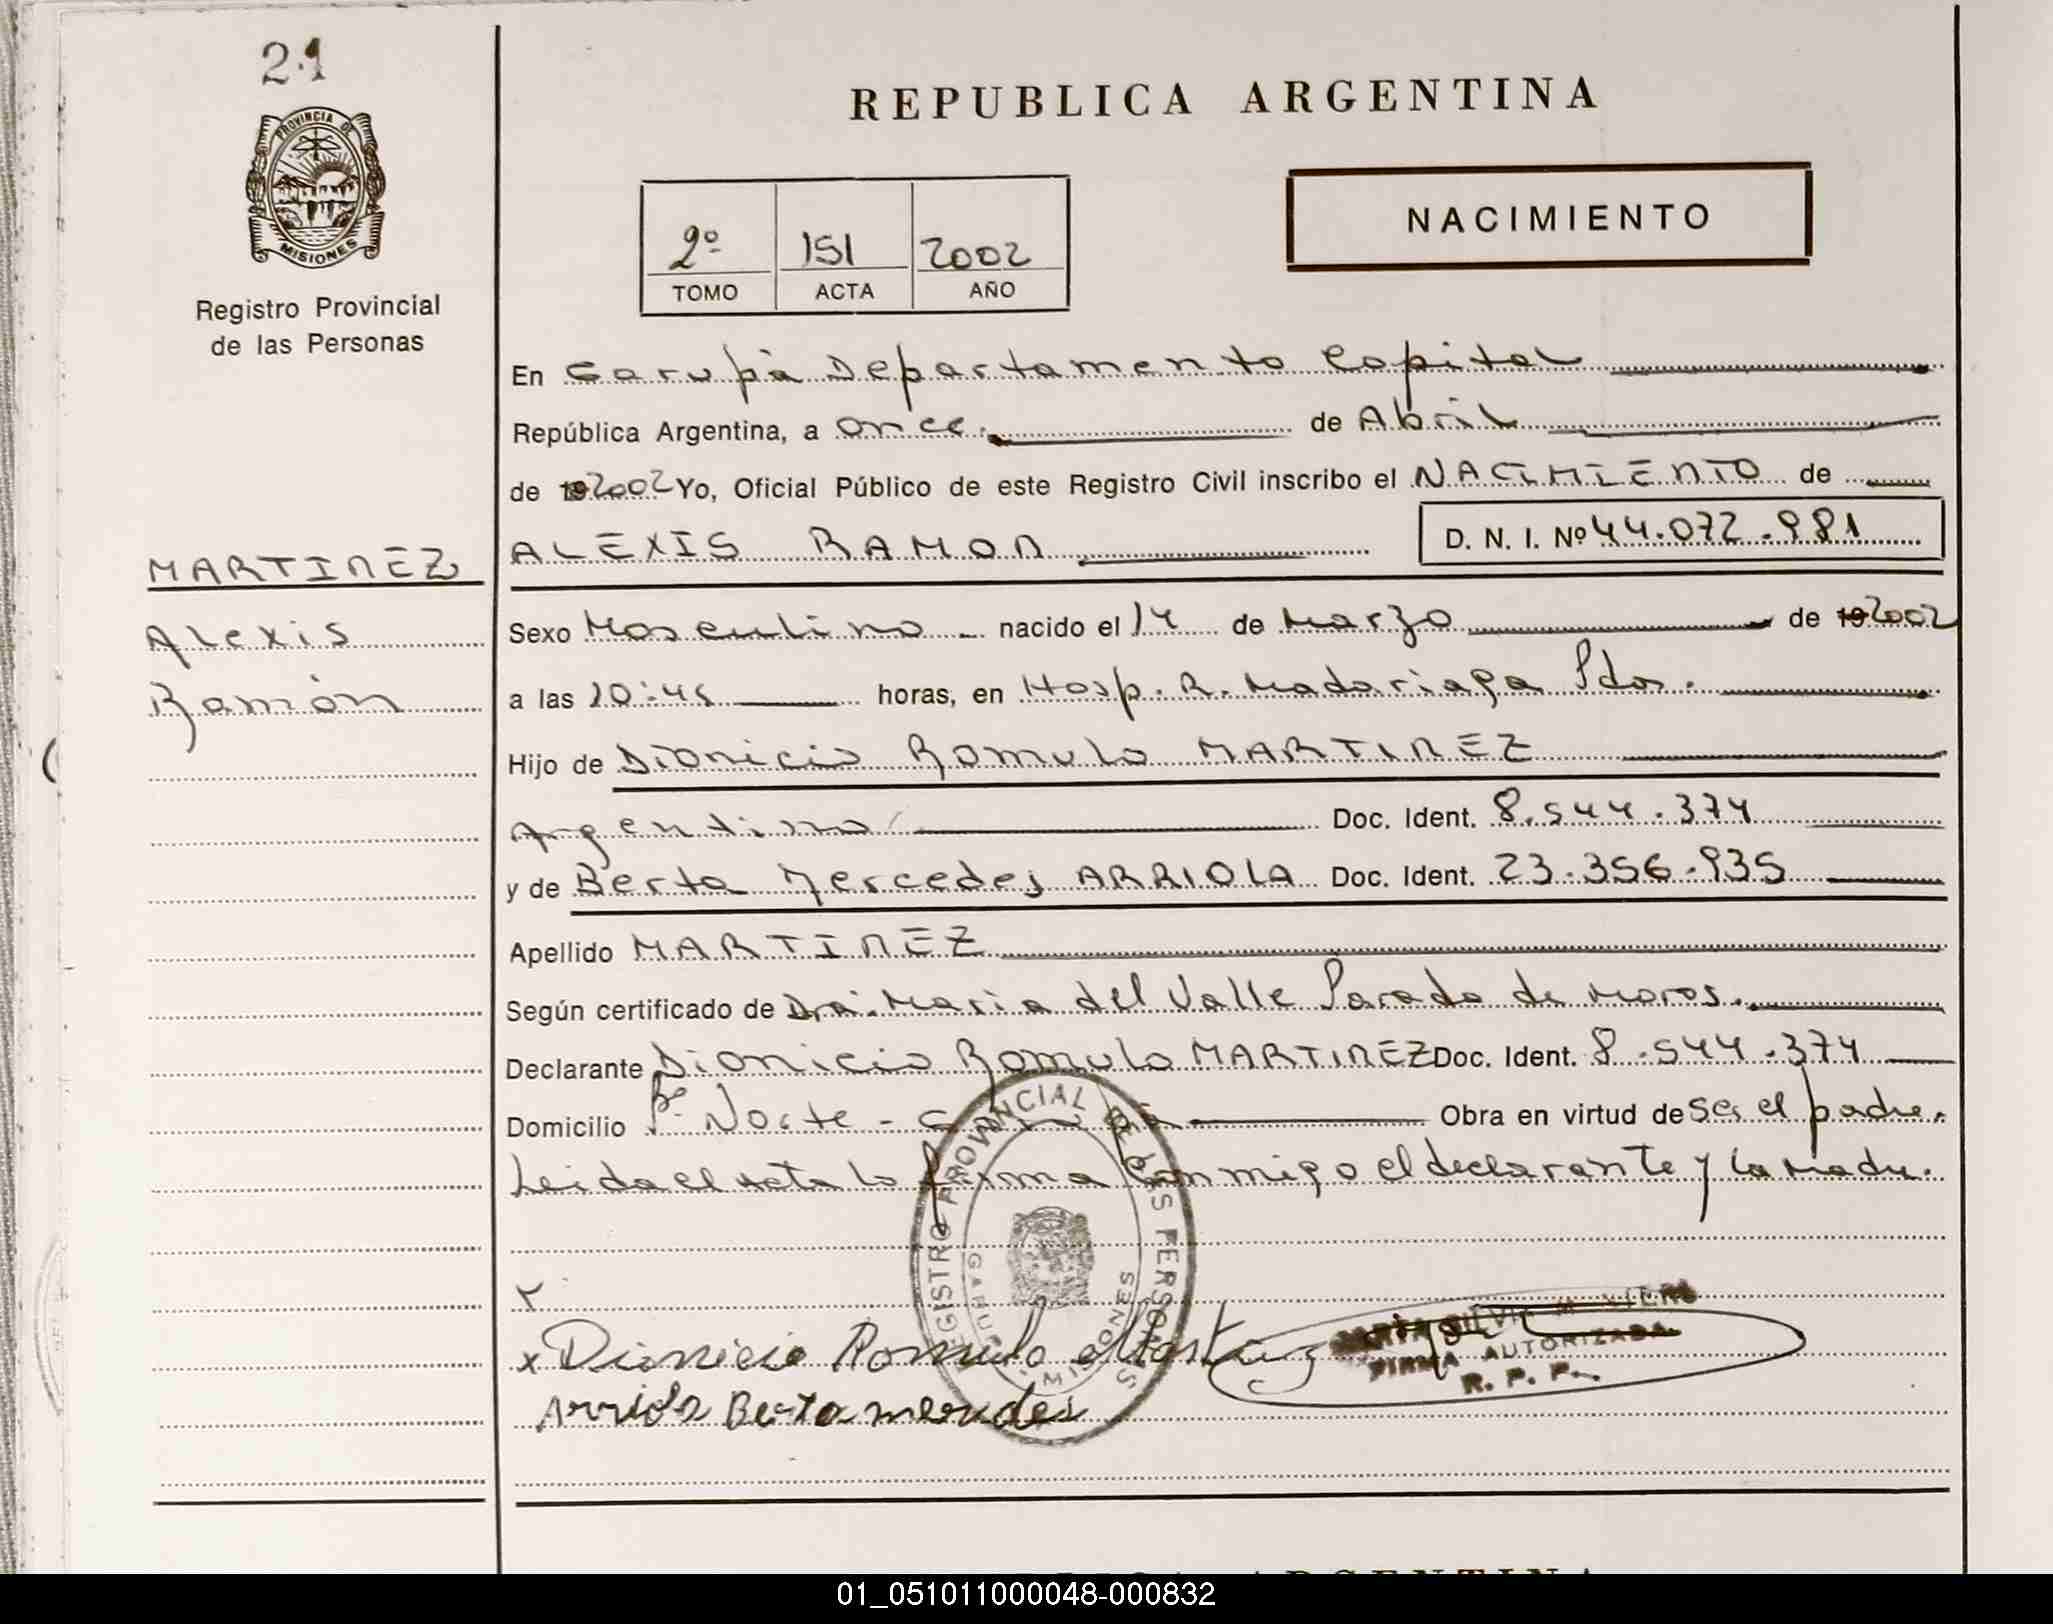 21
PROVINCIA DE
MISIONES
Registro Provincial
de las Personas
MARTINEZ
Alexis
Ramón
REPUBLICA ARGENTINA
2º 151 2002
TOMO ACTA AÑO
NACIMIENTO
En Garupá Departamento Capital
República Argentina, a once. de Abril
de 19 2002 Yo, Oficial Público de este Registro Civil inscribo el NACIMIENTO de
ALEXIS RAMON D. N. I. Nº 44.072.981
Sexo Masculino nacido el 14 de Marzo de 19 2002
a las 20:45 horas, en Hosp. R. Madariaga Pdas.
Hijo de Dionicio Romulo MARTINEZ
Argentino Doc. Ident. 8.544.374
y de Berta Mercedes ARRIOLA Doc. Ident. 23.356.935
Apellido MARTINEZ
Según certificado de Dra. Maria del Valle Parada de Moros.
Declarante Dionicio Romulo MARTINEZ Doc. Ident. 8.544.374
Domicilio Bº Norte - Garupá Obra en virtud de ser el padre.
Leida el acta la firma conmigo el declarante y la madre.
REGISTRO PROVINCIAL DE LAS PERSONAS
GARUPA
MISIONES
x Dionicio Romulo Martinez
FIRMA AUTORIZADA
R. P. P.
Arriola Berta mercedes
01_051011000048-000832